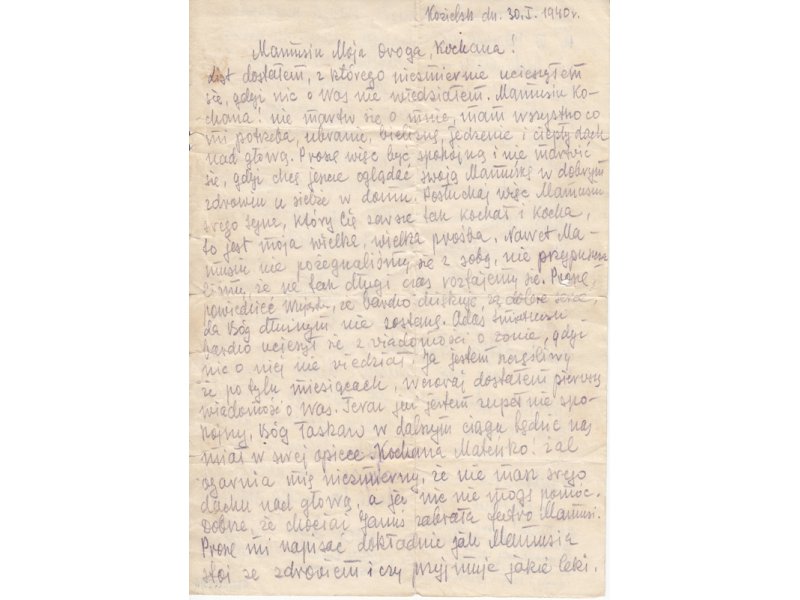 Kozielsk dn. 30.I.1940r.
Mamusiu Moja Droga, Kochana!
List dostałem, z którego niezmiernie ucieszyłem
się, gdyż nic o Was nie wiedziałem. Mamusiu Ko-
chana! nie martw się o mnie, mam wszystko co
mi potrzeba, ubranie, bieliznę, jedzenie i ciepły dach
nad głową. Proszę więc być spokojną i nie martwić
się, gdyż chcę jeszcze oglądać swoją Mamuśkę w dobrym
zdrowiu u siebie w domu. Posłuchaj więc Mamusiu
swego syna, który Cię zawsze tak kochał i kocha,
to jest moja wielka, wielka prośba. Nawet Ma-
musiu nie pożegnaliśmy się z sobą, nie przypuszcza
liśmy, że na tak długi czas rozstajemy się. Proszę
powiedzieć że bardzo dziękuję za dobre serce
da Bóg dłużnym nie zostanę. Adaś
bardzo ucieszył się z wiadomości o żonie, gdyż
nic o niej nie wiedział. Ja jestem szczęśliwy
że po tylu miesiącach, wczoraj dostałem pierwszą
wiadomość o Was. Teraz już jestem zupełnie spo-
kojny, Bóg łaskaw w dalszym ciągu będzie nas
miał w swej opiece. Kochana Mateńko! żal
ogarnia mię niezmierny, że nie masz swego
dachu nad głową, a ja nic nie mogę pomóc.
Dobrze, że chociaż zabrała futro Mamusi.
Proszę mi napisać dokładnie jak Mamusia
stoi ze zdrowiem i czy przyjmuje jakie leki.